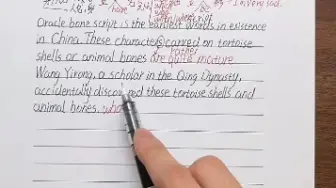 have
I'm very sad.
Oracle bone script is the earliest words in existence
in China. These characters carved on tortoise
shells or animal bones are quite mature.
rather
Wang Yirong, a scholar in the Qing Dynasty,
accidentally discovered these tortoise shells and
animal bones.